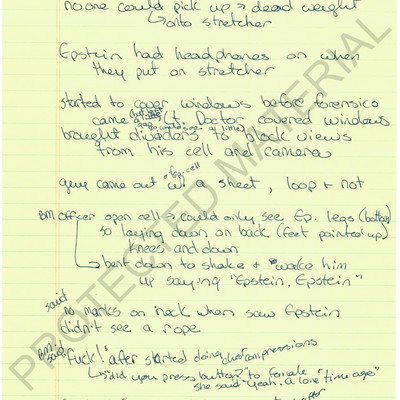 no one could pick up → dead weight
↳ onto stretcher
Epstein had headphones on when
they put on stretcher
started to cover windows before forensics
came Lt. Doctor covered windows
brought dividers to block views
from his cell and camera
guy came out w/ a sheet, loop + not
Ep. cell
BM officer open cell → could only see Ep. legs (bottom)
so laying down on back (feet pointed up)
knees and down
↳ bent down to shake + wake him
up saying "Epstein, Epstein"
said
no marks on neck when saw Epstein
didn't see a rope
BM: said "Fuck!" after started doing chest compressions
↳ "did you press button?" to female
she said "yeah. a long time ago"
PROTECTED MATERIAL